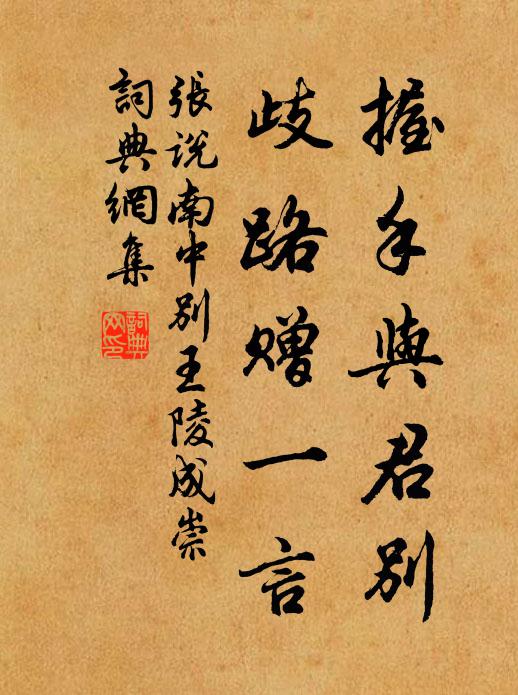 握手與君別
歧路贈一言
張說南中別王陵成崇
詞典網集
詞典
网印